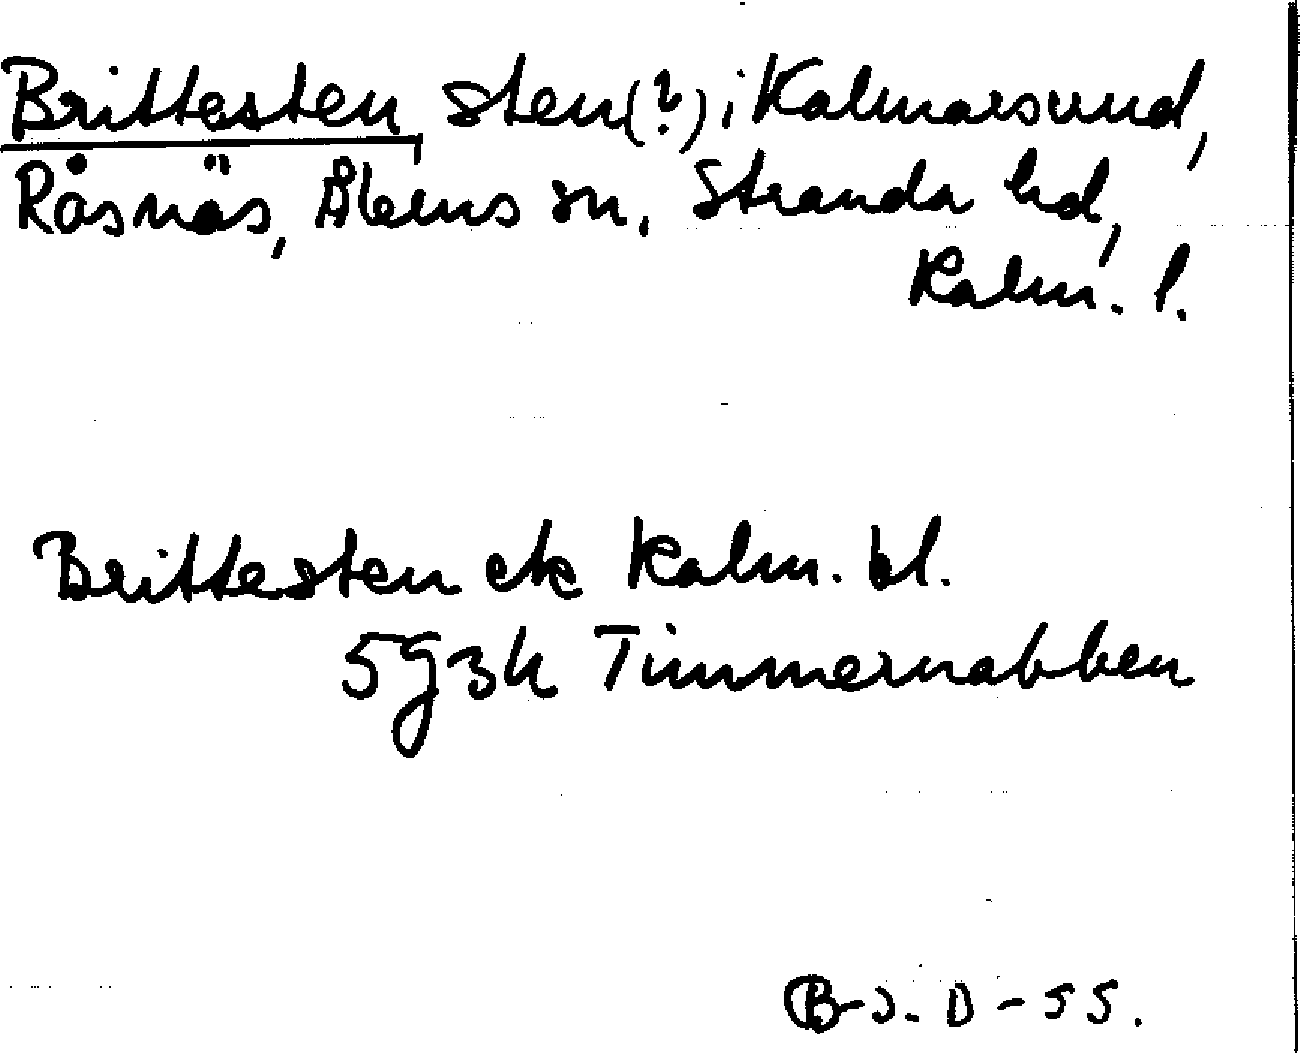 Brittesten, sten(?) i Kalmarsund,
Råsnäs, Ålems sn, Stranda hd,
Kalm. l.
Brittesten ek Kalm. bl.
5g3h Timmernabben
B-J. D-55.